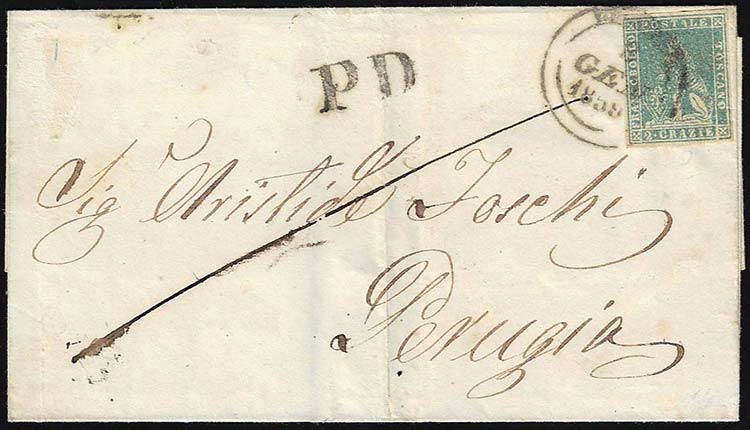 P D
GEN
1858
FRANCOBOLLO
POSTALE
TOSCANO
2 GRAZIE
Sig.r Aristide Toschi
Perugia